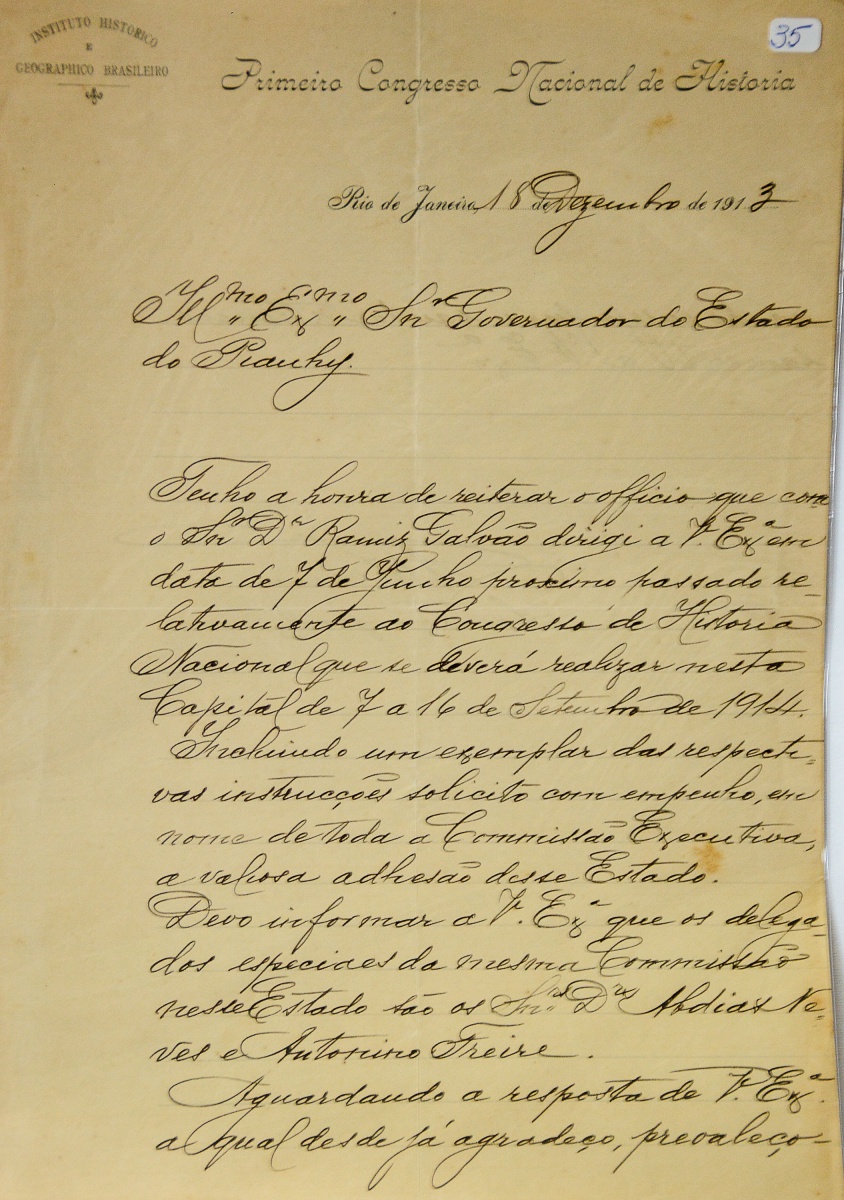 INSTITUTO HISTORICO
E
GEOGRAPHICO BRASILEIRO
35
Primeiro Congresso Nacional de Historia
Rio de Janeiro, 18 de Dezembro de 1913
Ill.mo Ex.mo Snr Governador do Estado
do Piauhy.
Tenho a honra de reiterar o officio que com
o Snr Dr Ramiz Galvão dirigi a V. Exa em
data de 7 de Junho proximo passado re-
lativamente ao Congresso de Historia
Nacional que se deverá realizar nesta
Capital de 7 a 16 de Setembro de 1914.
Incluindo um exemplar das respecti-
vas instrucções solicito com empenho, em
nome de toda a Commissão Executiva,
a valiosa adhesão desse Estado.
Devo informar a V. Exa que os delega-
dos especiaes da mesma Commissão
nesse Estado são os Snrs Drs Abdias Ne-
ves e Antonino Freire.
Aguardando a resposta de V. Exa.
a qual desde já agradeço, prevaleço-